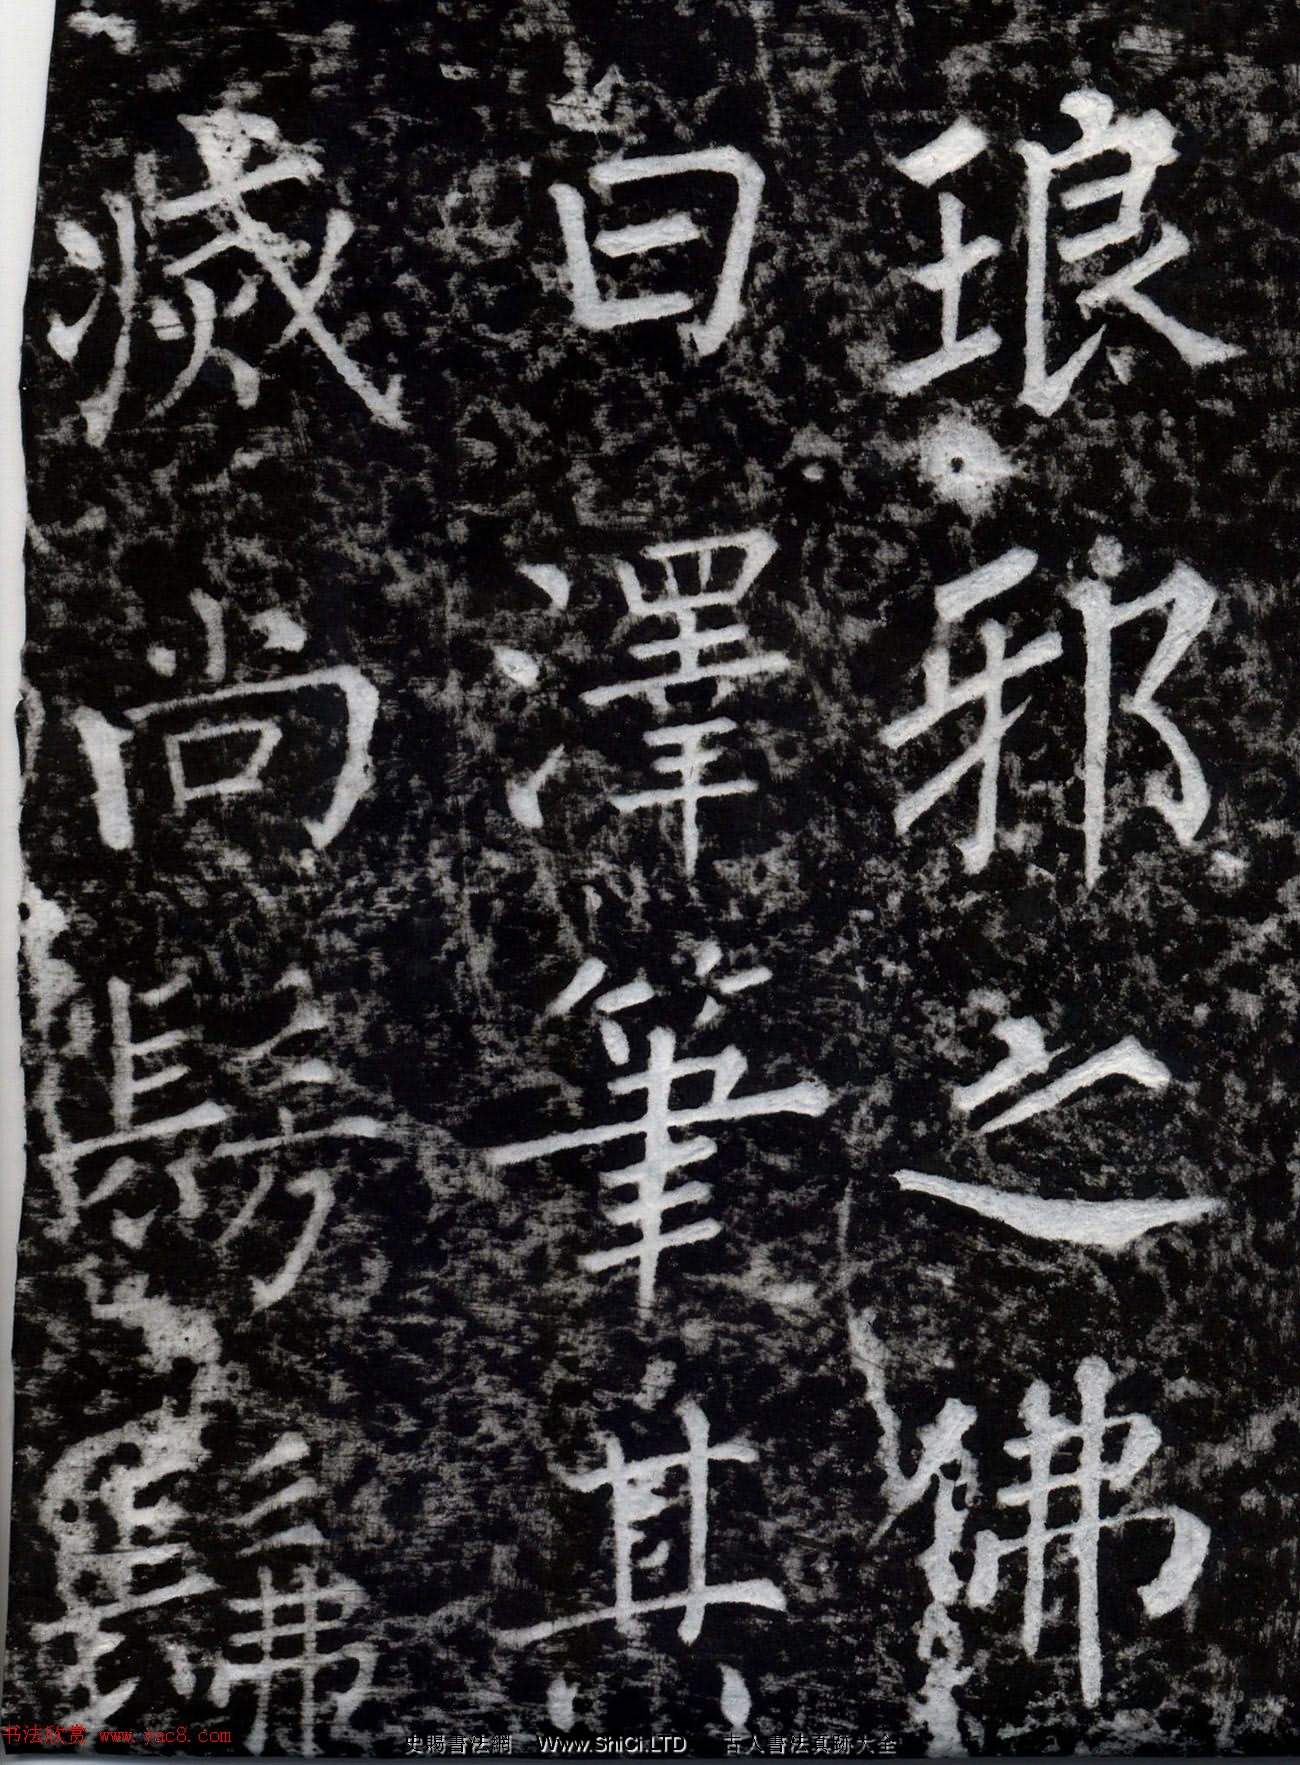 琅邪之佛
曰澤筆其
滅尚髣髴
书法欣赏 www.yac8.com
史賜書法網 Www.ShiCi.LTD 古人書法真跡大全